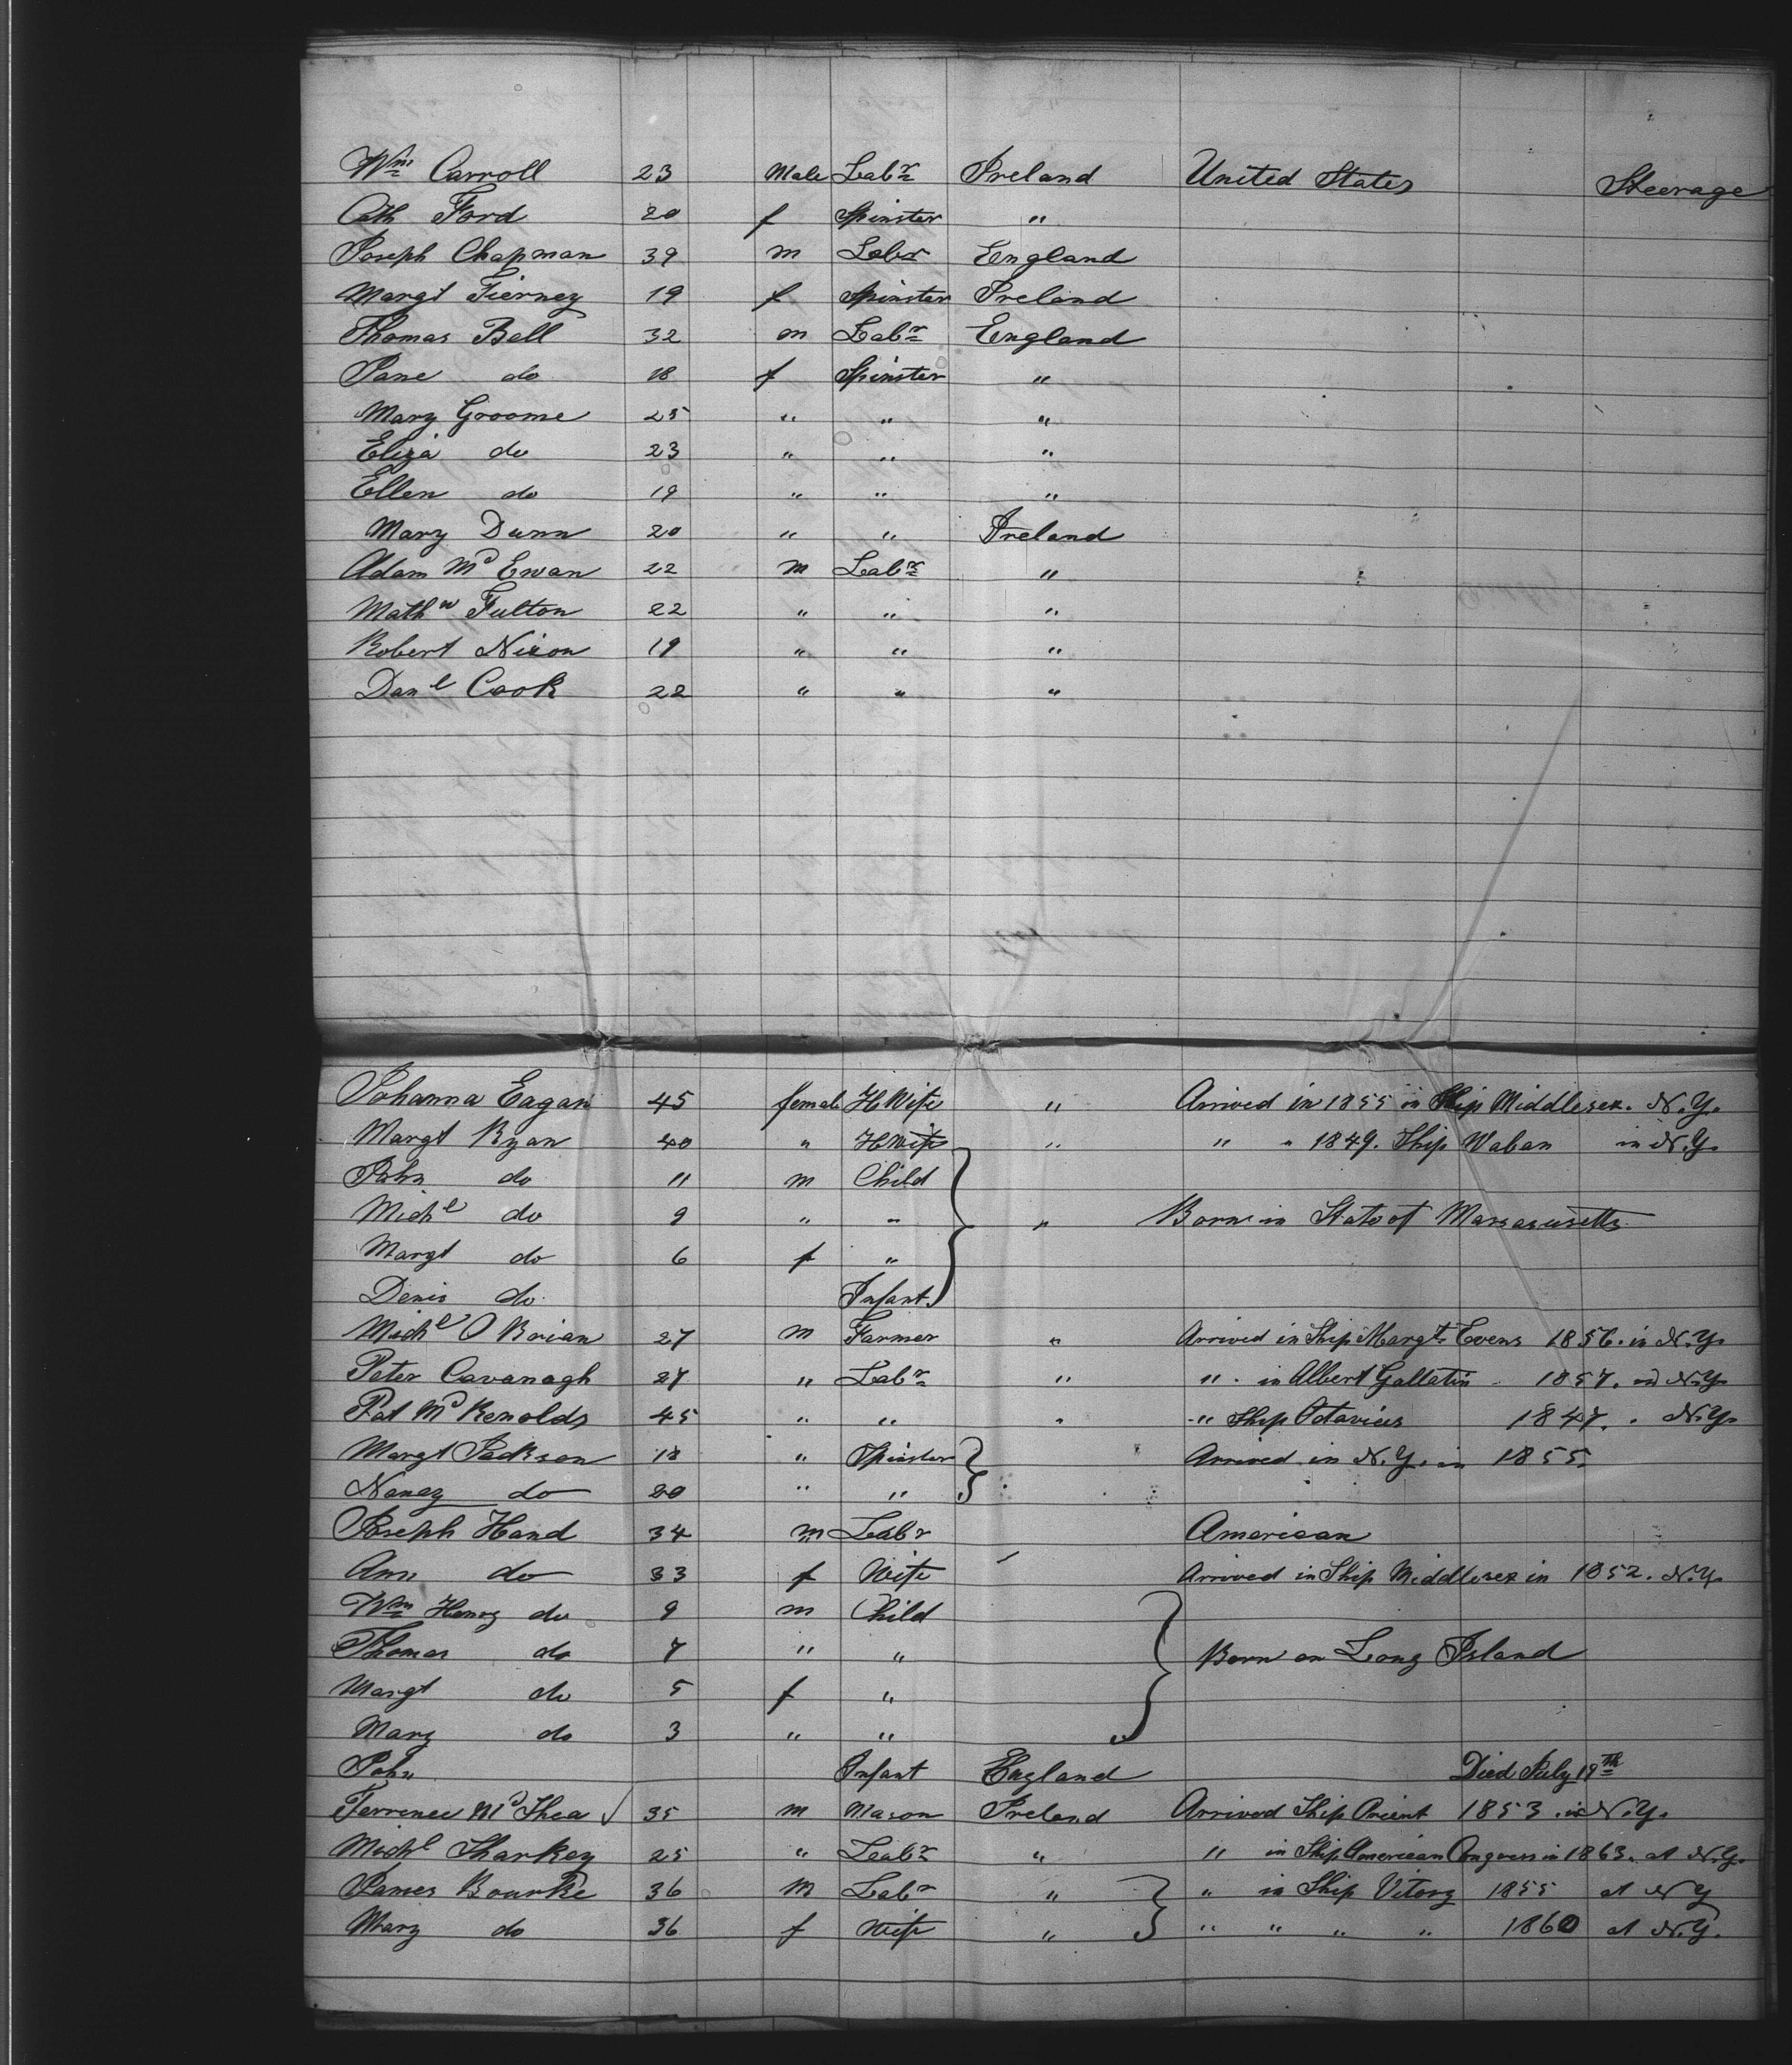 Wm Carroll 23 Male Labr Ireland United States Steerage
Cath Ford 20 f Spinster "
Joseph Chapman 39 m Labr England
Margt Tierney 19 f Spinster Ireland
Thomas Bell 32 m Labr England
Jane do 18 f Spinster "
Mary Groome 25 " " "
Eliza do 23 " " "
Ellen do 19 " " "
Mary Dunn 20 " " Ireland
Adam Mc Ewan 22 m Labr "
Mathw Fulton 22 " " "
Robert Nixon 19 " " "
Danl Cook 22 " " "
Johanna Eagan 45 female HWife " Arrived in 1855 in Ship Middlesex. N.Y.
Margt Ryan 40 " HWife " " " 1849. Ship Waban in N.Y.
John do 11 m Child
Michl do 9 " " " Born in State of Massasusetts
Margt do 6 f "
Denis do Infant
Michl O Brian 27 m Farmer " Arrived in Ship Margt Evens 1856. in N.Y.
Peter Cavanagh 27 " Labr " " in Albert Gallatin 1857. in N.Y.
Pat Mc Renolds 45 " " " " Ship Octavius 1847. " N.Y.
Margt Jackson 18 " Spinster Arrived in N.Y. in 1855.
Nancy do 20 " "
Joseph Hand 34 m Labr American
Ann do 33 f Wife Arrived in Ship Middlesex in 1852. N.Y.
Wm Henry do 9 m Child
Thomas do 7 " " Born on Long Island
Margt do 5 f "
Mary do 3 " "
John Infant England Died July 19th
Terrence Mc Shea √ 35 m Mason Ireland Arrived Ship Orient 1853. in N.Y.
Michl Sharkey 25 " Labr " " in Ship American Congress in 1863. at N.Y.
James Bourke 36 m Labr " " in Ship Vitory 1855 at N.Y
Mary do 36 f Wife " " " " " 1860 at N.Y.